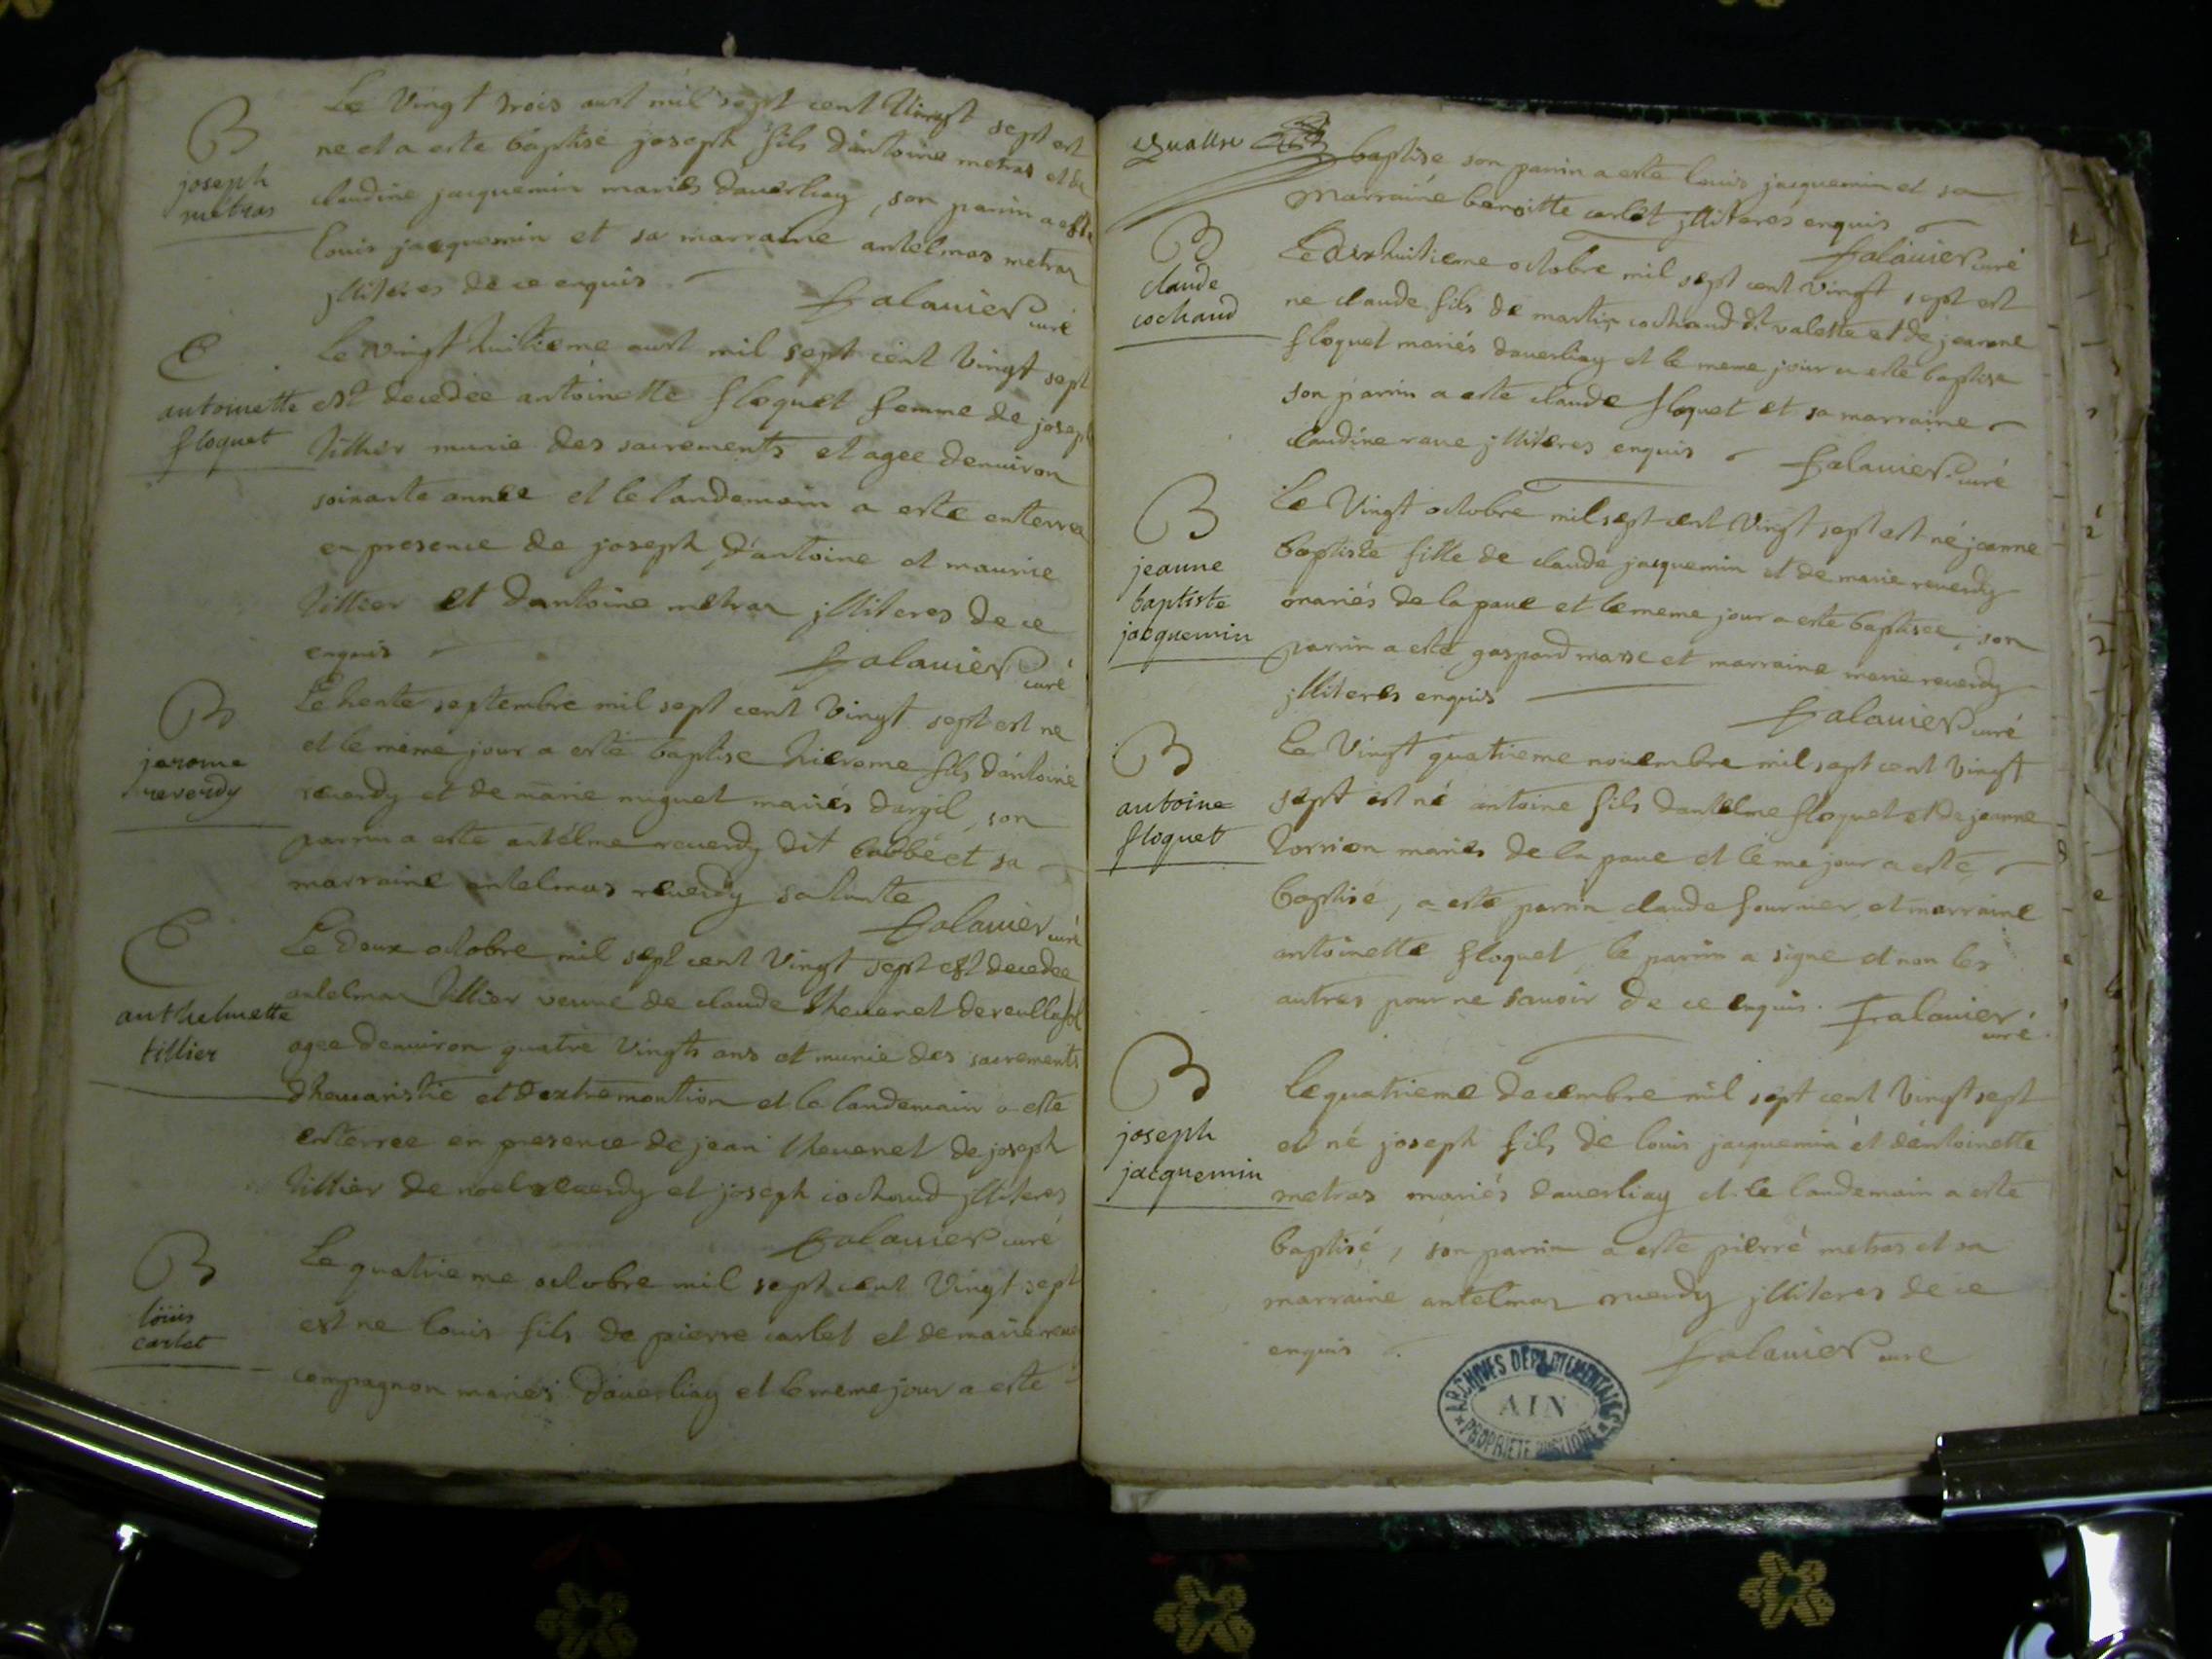 B
joseph
metras
Le vingt trois aust mil sept cent vingt sept est
ne et a este baptisé joseph fils dantoine metras et de
claudine jacquemin mariés daverliay, son parrin a este
louis jacquemin et sa marraine antelmas metras
jlliteres de ce enquis
Falavier curé
E
antoinette
floquet
Le vingt huitieme aust mil sept cent vingt sept
est decedée antoinette floquet femme de joseph
tillier munie des sacrements et agee denviron
soixante année et le landemain a este enterree
en presence de joseph, dantoine et maurice
tillier et dantoine metras jlliteres de ce
enquis
Falavier curé
B
jerome
reverdy
Le trente septembre mil sept cent vingt sept est ne
et le même jour a esté baptise hierome fils dantoine
reverdy et de marie miguet mariés dargil, son
parrin a este antelme reverdy dit labbé et sa
marraine antelmas reverdy sa tante
Falavier curé
E
anthelmette
tillier
Le deux octobre mil sept cent vingt sept est decedee
antelmas tillier veuve de claude thevenet de
agee denviron quatre vingts ans et munie des sacrements
dheucaristie et dextremontion et le landemain a este
enterree en presence de jean thevenet de joseph
tillier de noel reverdy et joseph cochaud jlliteres
Falavier curé
B
loüis
carlet
Le quatrieme octobre mil sept cent vingt sept
est ne louis fils de pierre carlet et de marie
compagnon mariés daverliay et le meme jour a este
quattre
baptise son parrin a este louis jacquemin et sa
marraine benoitte carlet jlliteres enquis
Falavier curé
B
claude
cochaud
Le dixhuitieme octobre mil sept cent vingt sept est
ne claude fils de martin cochaud dt valette et de jeanne
floquet mariés daverliay et le meme jour a este baptise
son parrin a este claude floquet et sa marraine
claudine rave jlliteres enquis
Falavier curé
B
jeanne
baptiste
jacquemin
Le vingt octobre mil sept cent vingt sept est né jeanne
baptiste fille de claude jacquemin et de marie reverdy
mariés de la pave et le meme jour a este baptisee, son
parrin a esté gaspard masse et marraine marie reverdy
jlliteres enquis
Falavier curé
B
antoine
floquet
Le vingt quatrieme novembre mil sept cent vingt
sept est né antoine fils dantelme floquet et de jeanne
torrion mariés de la pave et le me jour a esté
baptisé, a este parrin claude fournier, et marraine
antoinette floquet, le parrin a signe et non les
autres pour ne savoir de ce enquis.
Falavier
curé
B
joseph
jacquemin
Le quatrieme decembre mil sept cent vingt sept
est né joseph fils de louis jacquemin et dantoinette
metras mariés daverliay et le landemain a este
baptisé, son parrin a este pierre metras et sa
marraine antelmas reverdy jlliteres de ce
enquis
Falavier curé
ARCHIVES DÉPARTEMENTALES
AIN
PROPRIÉTÉ PUBLIQUE